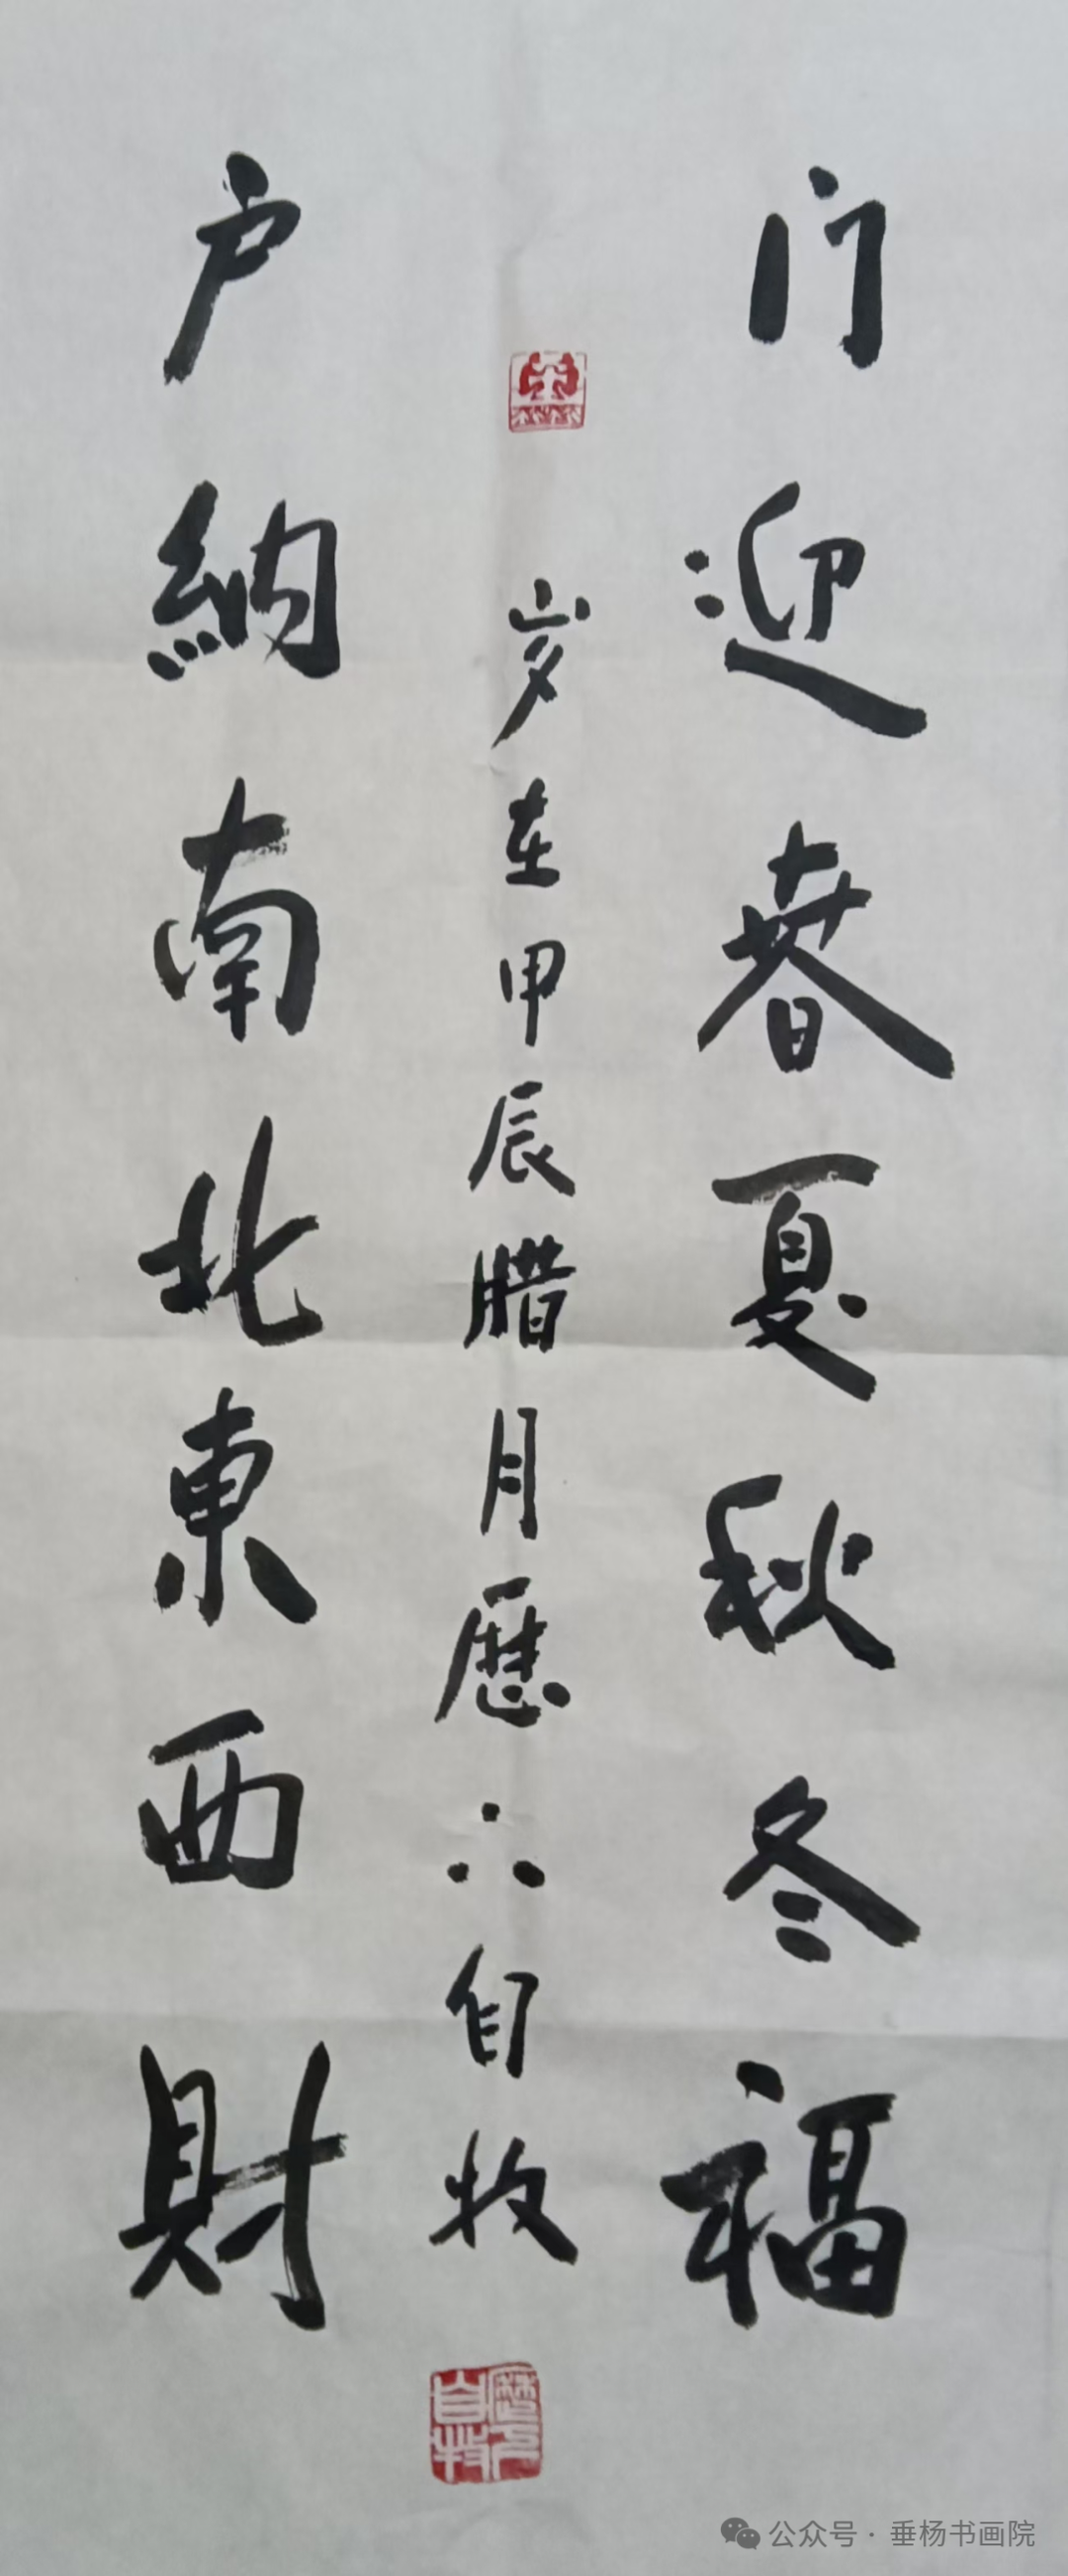 门迎春夏秋冬福
岁在甲辰腊月歷六自牧
户納南北東西財
公众号·垂杨书画院